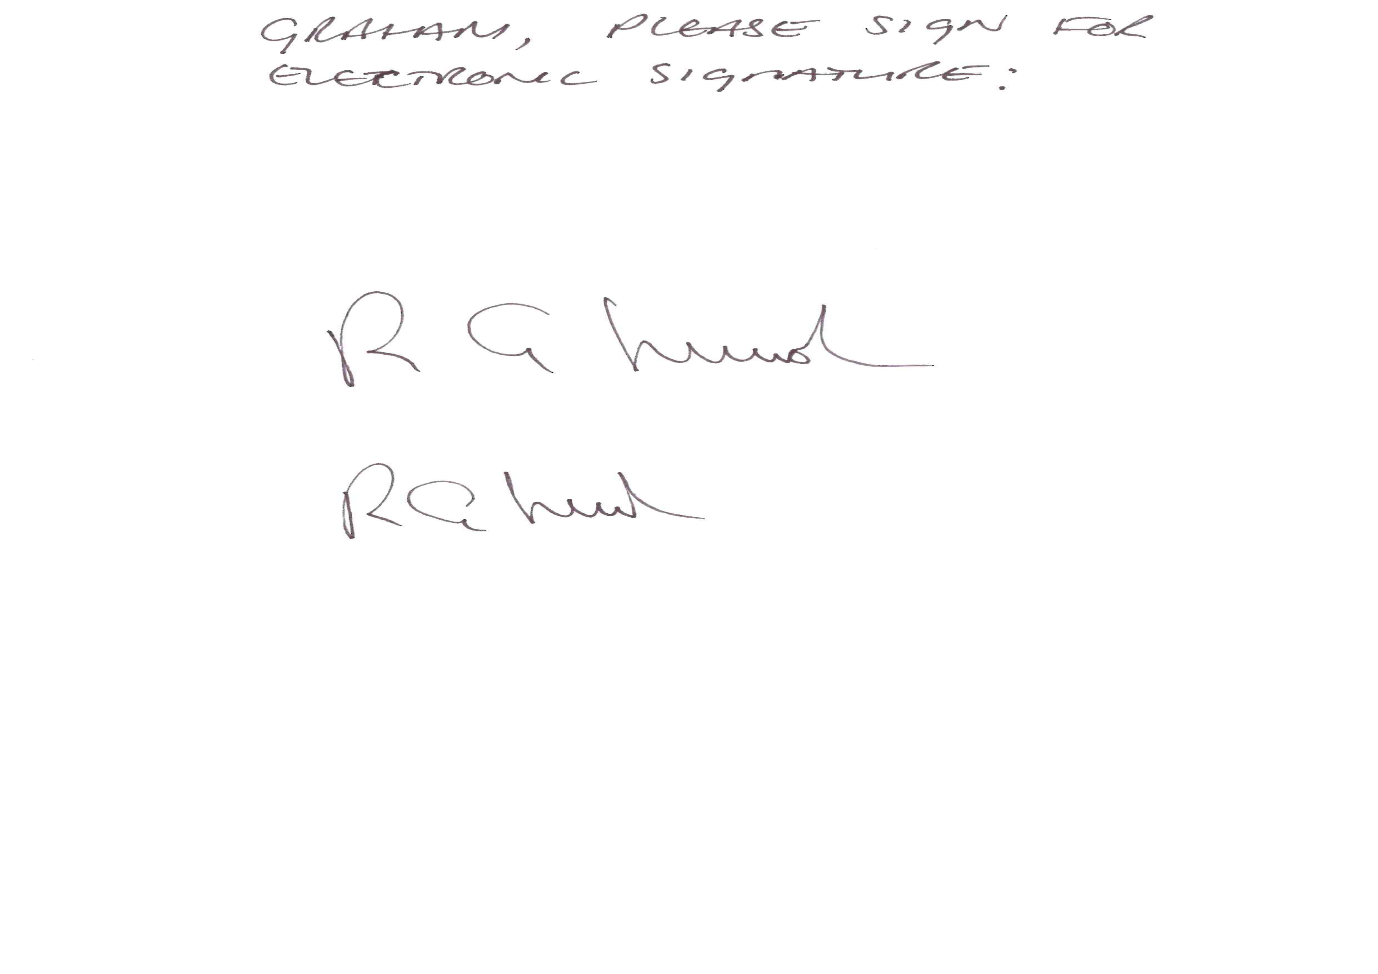 GRAHAM, PLEASE SIGN FOR
ELECTRONIC SIGNATURE:
R G
R G